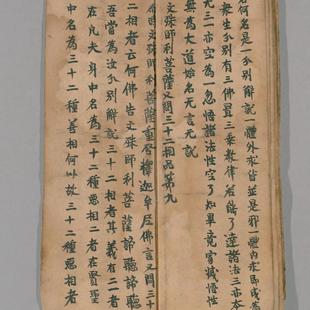 何名是一分別解說一體外求皆並是邪一體內求即成為
衆生分別有三佛最三乘教俥若能了達諸法三亦本
无三一亦空為一忽悟諸法性空了知畢竟官寂滅悟性
無為大道始名无言无說
文殊師利菩薩又問三十二相品苐九
尒時文殊師利菩薩重啓釋迦牟尼佛言又問三十
二相者云何佛告文殊師利菩薩諦聽諦聽
吾當為汝分別解說三十二相者其義有二者
在凡夫身中名為三十二種惡相二者在賢聖
中名為三十二種善相何以故三十二種惡相者